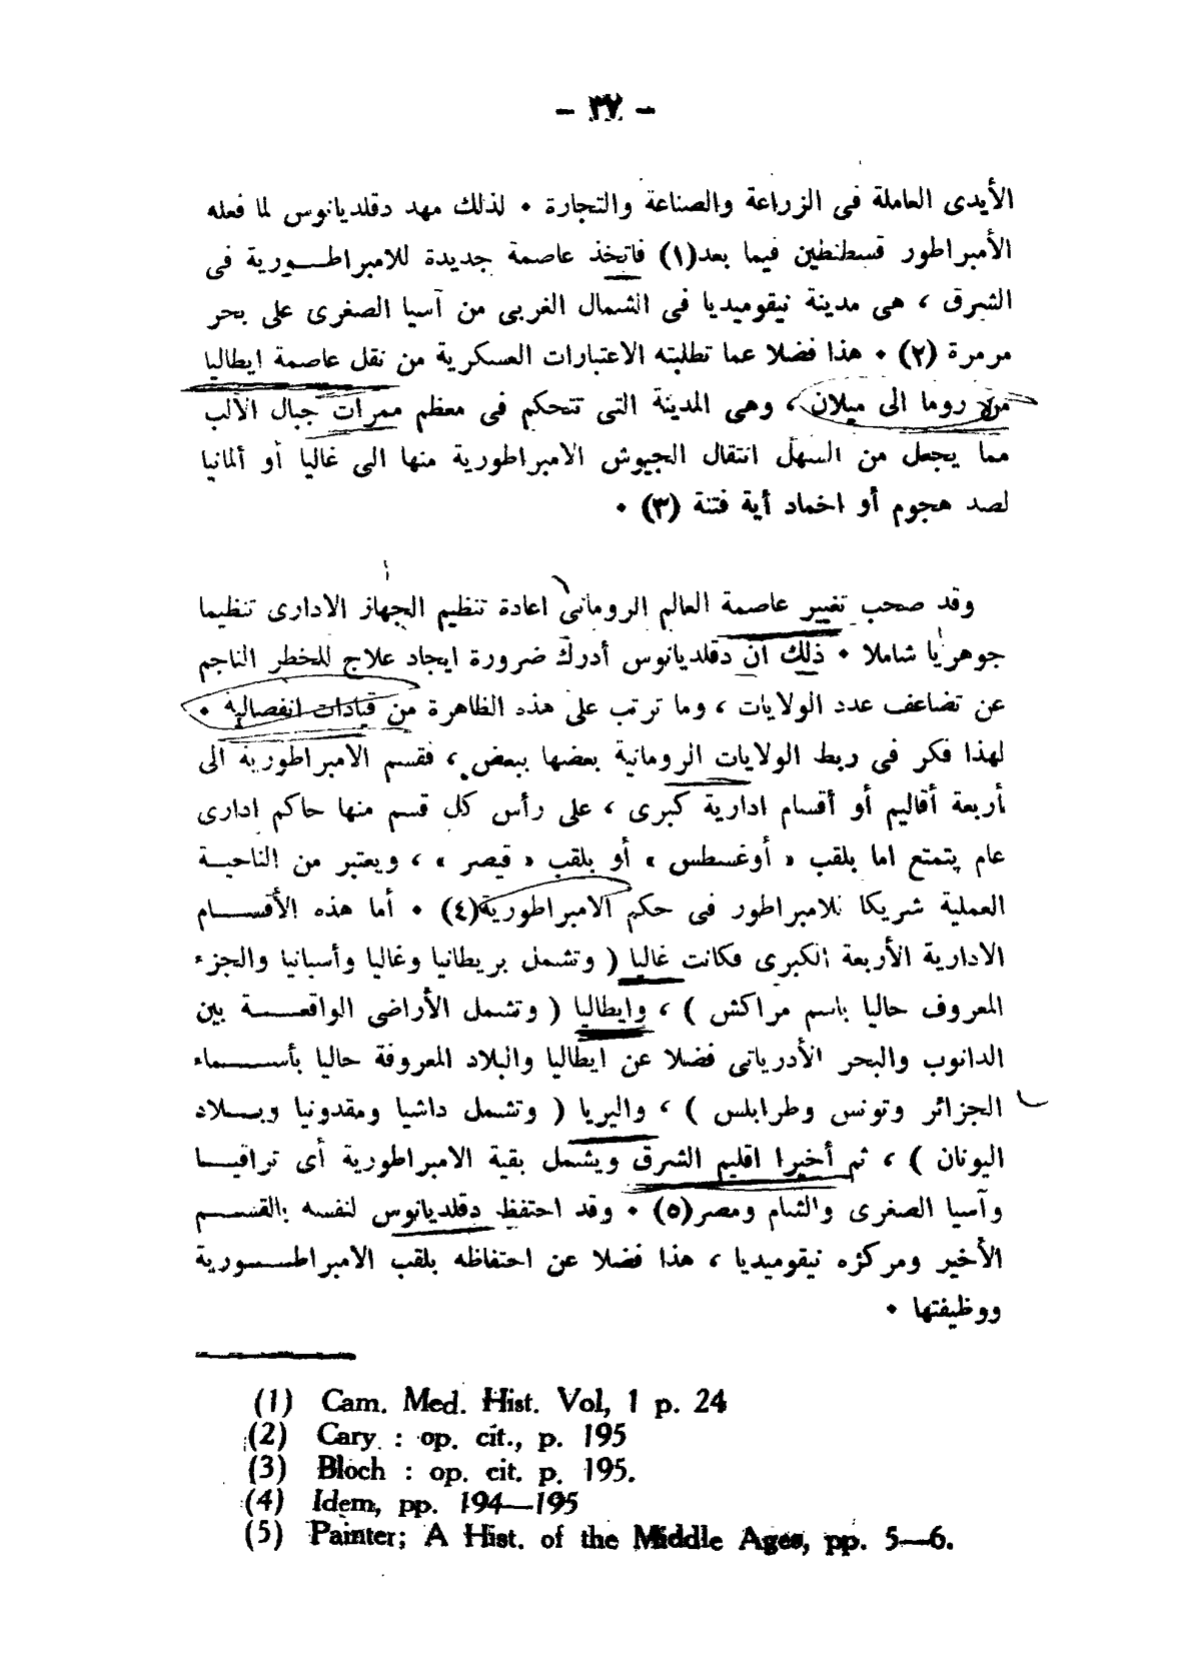 - ٣٧ -
الأيدى العاملة فى الزراعة والصناعة والتجارة • لذلك مهد دقلديانوس لما فعله
الأمبراطور قسطنطين فيما بعد(١) فاتخذ عاصمة جديدة للامبراطـــورية فى
الشرق ، هى مدينة نيقوميديا فى الشمال الغربى من آسيا الصغرى على بحر
مرمرة (٢) • هذا فضلا عما تطلبته الاعتبارات العسكرية من نقل عاصمة ايطاليا
من روما الى ميلان ، وهى المدينة التى تتحكم فى معظم ممرات جبال الألب
مما يجعل من السهل انتقال الجيوش الامبراطورية منها الى غاليا أو ألمانيا
لصد هجوم أو اخماد أية فتنة (٣) •
وقد صحب تغيير عاصمة العالم الرومانى اعادة تنظيم الجهاز الادارى تنظيما
جوهريا شاملا • ذلك أن دقلديانوس أدرك ضرورة ايجاد علاج للخطر الناجم
عن تضاعف عدد الولايات ، وما ترتب على هذه الظاهرة من قيادات انفصالية •
لهذا فكر فى ربط الولايات الرومانية بعضها ببعض ، فقسم الامبراطورية الى
أربعة أقاليم أو أقسام ادارية كبرى ، على رأس كل قسم منها حاكم ادارى
عام يتمتع اما بلقب « أوغسطس » أو بلقب « قيصر » ، ويعتبر من الناحيـة
العملية شريكا للامبراطور فى حكم الامبراطورية(٤) • أما هذه الأقســـام
الادارية الأربعة الكبرى فكانت غاليا ( وتشمل بريطانيا وغاليا وأسبانيا والجزء
المعروف حاليا باسم مراكش ) ، وايطاليا ( وتشمل الأراضى الواقعـــة بين
الدانوب والبحر الأدرياتى فضلا عن ايطاليا والبلاد المعروفة حاليا بأســـماء
الجزائر وتونس وطرابلس ) ، واليريا ( وتشمل داشيا ومقدونيا وبـــلاد
اليونان ) ، ثم أخيرا اقليم الشرق ويشمل بقية الامبراطورية أى تراقيــا
وآسيا الصغرى والشام ومصر(٥) • وقد احتفظ دقلديانوس لنفسه بالقســم
الأخير ومركزه نيقوميديا ، هذا فضلا عن احتفاظه بلقب الامبراطـــورية
ووظيفتها •
(1) Cam. Med. Hist. Vol, 1 p. 24
(2) Cary : op. cit., p. 195
(3) Bloch : op. cit. p. 195.
(4) Idem, pp. 194—195
(5) Painter; A Hist. of the Middle Ages, pp. 5—6.